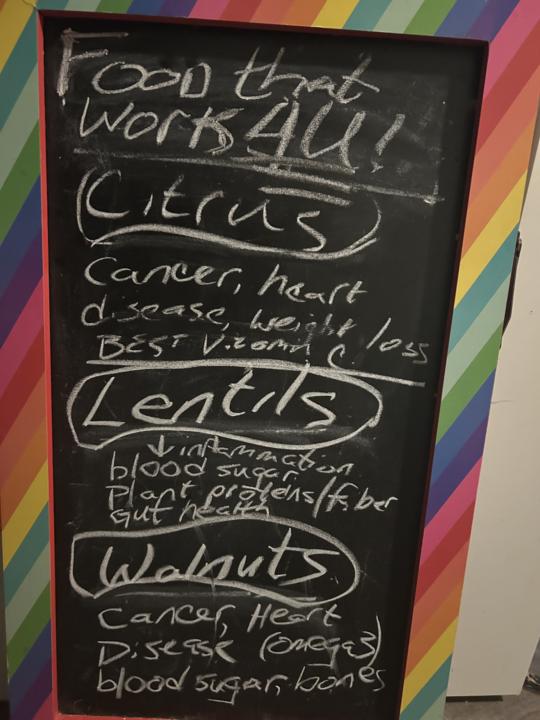 Food that
Works 4U!
Citrus
Cancer, heart
disease, weight loss
BEST Vitamin C
Lentils
↓ inflammation
blood sugar
plant proteins/fiber
gut health
Walnuts
Cancer, Heart
Disease (omega3)
blood sugar, bones